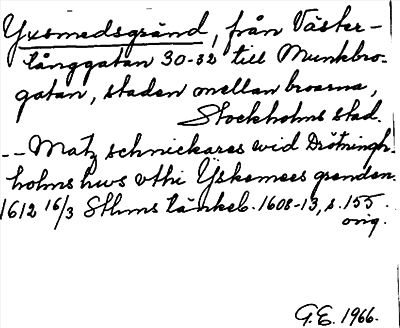 Yxsmedsgränd, från Väster-
långgatan 30-32 till Munkbro-
gatan, staden mellan broarna,
Stockholms stad.
-- Matz schnickares wid Drötningh-
holms huus vthi Yskemees grenden.
1612 16/3 Sthms tänkeb. 1608-13, s. 155.
orig.
G.E. 1966.